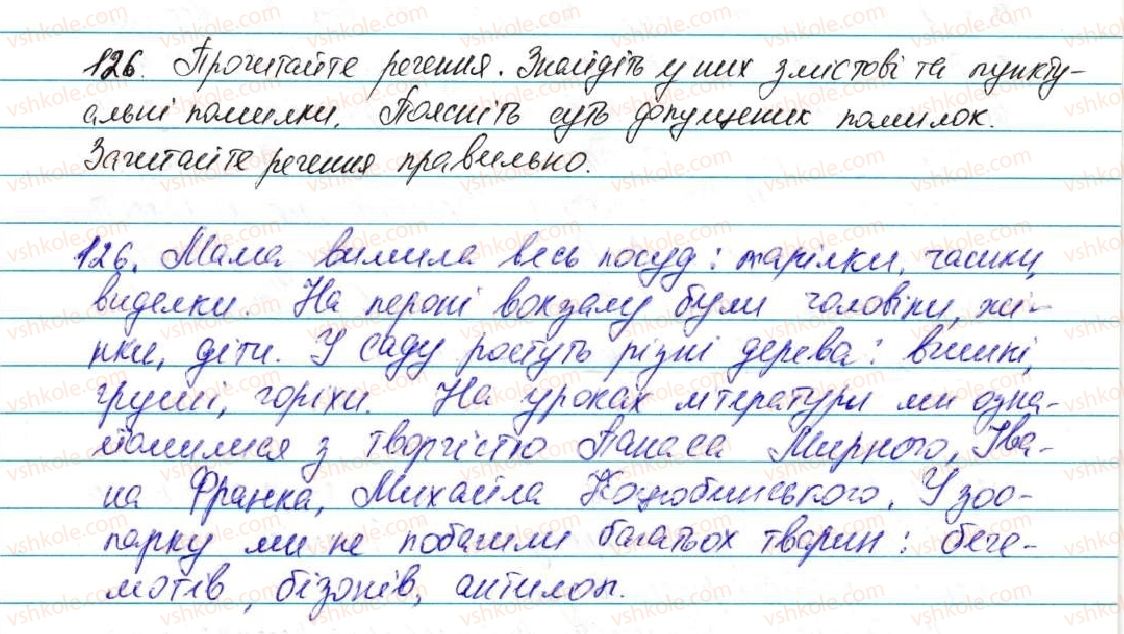 126. Прочитайте речення. Знайдіть у них змістові та пункту-
альні помилки. Поясніть суть допущених помилок.
Зачитайте речення правильно.
126. Мама вимила весь посуд: тарілки, чашки,
виделки. На пероні вокзалу були чоловіки, жі-
нки, діти. У саду ростуть різні дерева: вишні,
груші, горіхи. На уроках літератури ми озна-
йомилися з творчістю Панаса Мирного, Іва-
на Франка, Михайла Коцюбинського. У зоо-
парку ми не побачили багатьох тварин: беге-
мотів, бізонів, антилоп.